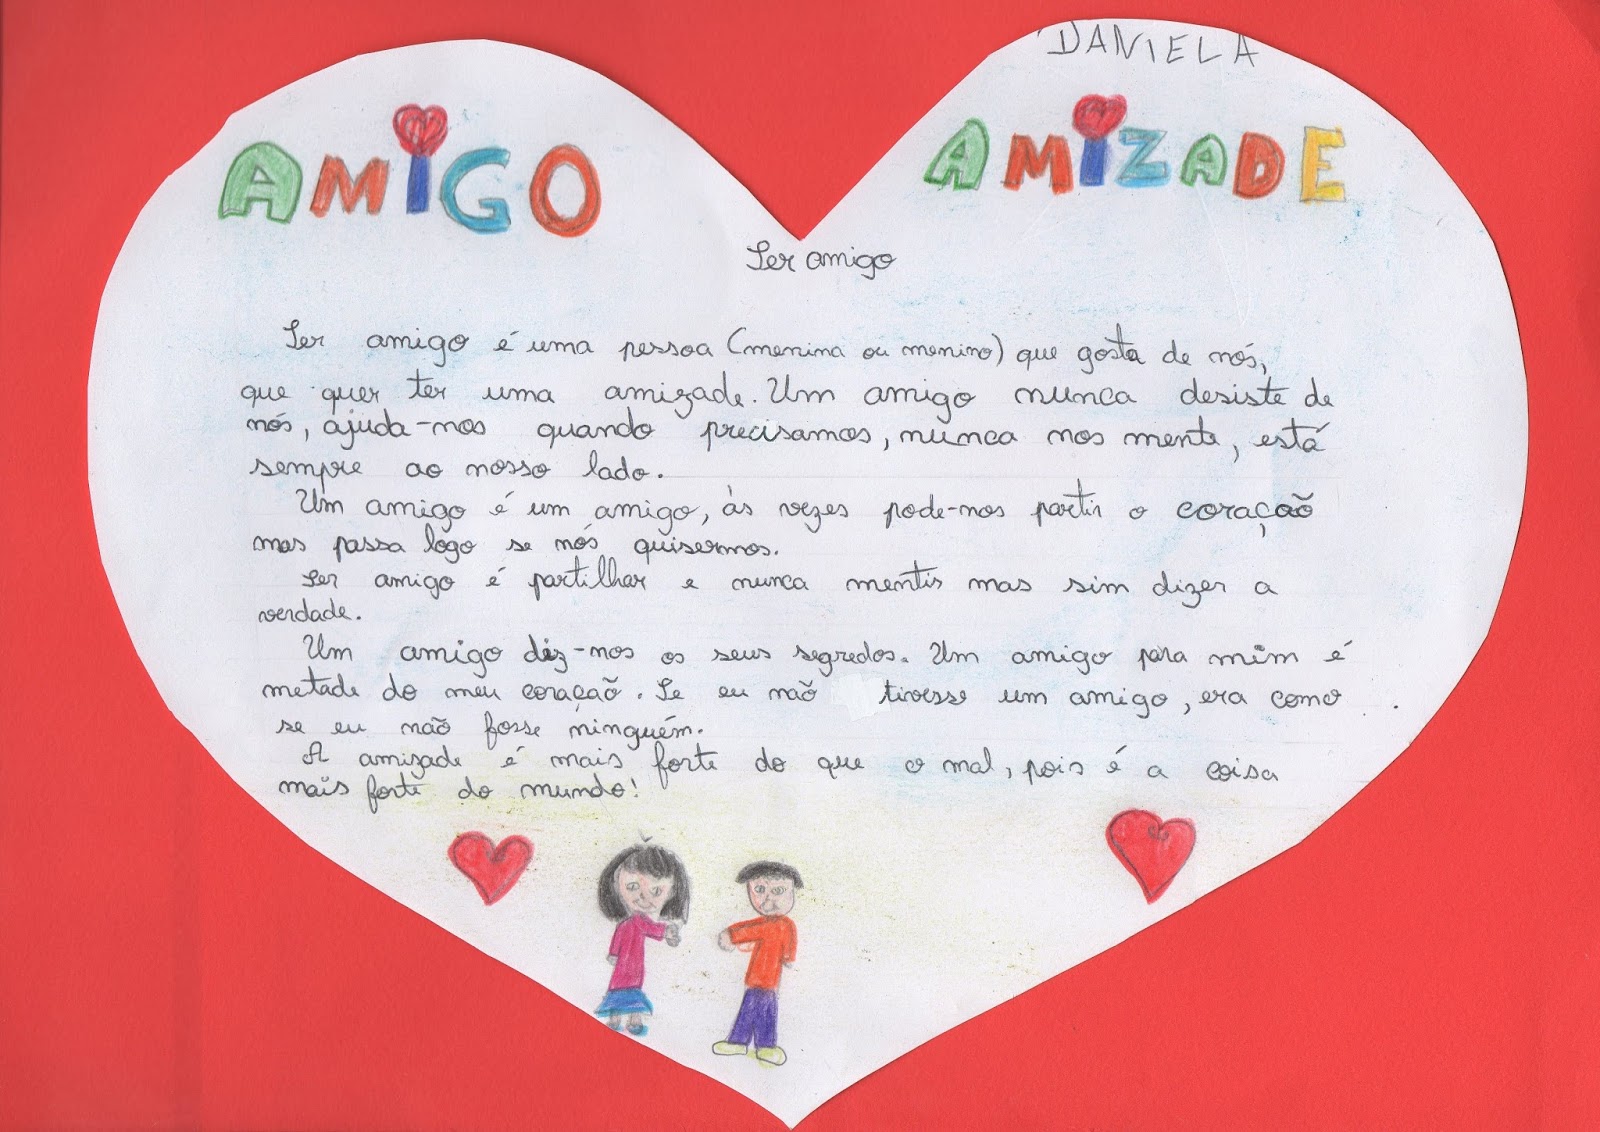 DANIELA
AMIGO
AMIZADE
Ser amigo
Ser amigo é uma pessoa (menina ou menino) que gosta de nós,
que quer ter uma amizade. Um amigo nunca desiste de
nós, ajuda-nos quando precisamos, nunca nos mente, está
sempre ao nosso lado.
Um amigo é um amigo, às vezes pode-nos partir o coração
mas passa logo se nós quisermos.
Ser amigo é partilhar e nunca mentir mas sim dizer a
verdade.
Um amigo diz-nos os seus segredos. Um amigo para mim é
metade do meu coração. Se eu não tivesse um amigo, era como
se eu não fosse ninguém.
A amizade é mais forte do que o mal, pois é a coisa
mais forte do mundo!